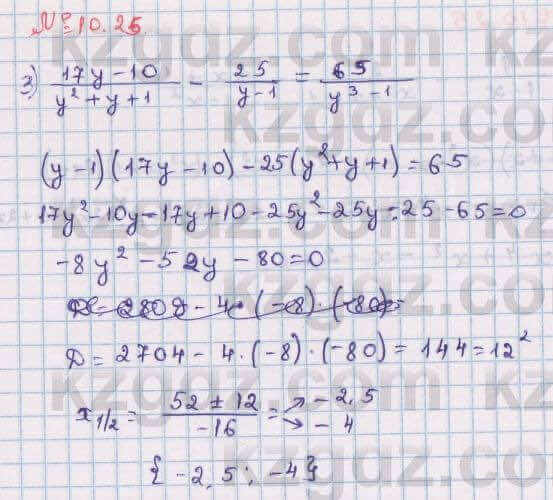 № 10.25
3) (17y-10)/(y²+y+1) - 25/(y-1) = 65/(y³-1)
(y-1)(17y-10)-25(y²+y+1)=65
17y²-10y-17y+10-25y²-25y-25-65=0
-8y²-52y-80=0
D=2704-4·(-8)·(-80)=144=12²
x1/2= (52±12)/(-16) = -2,5
-4
{-2,5; -4}